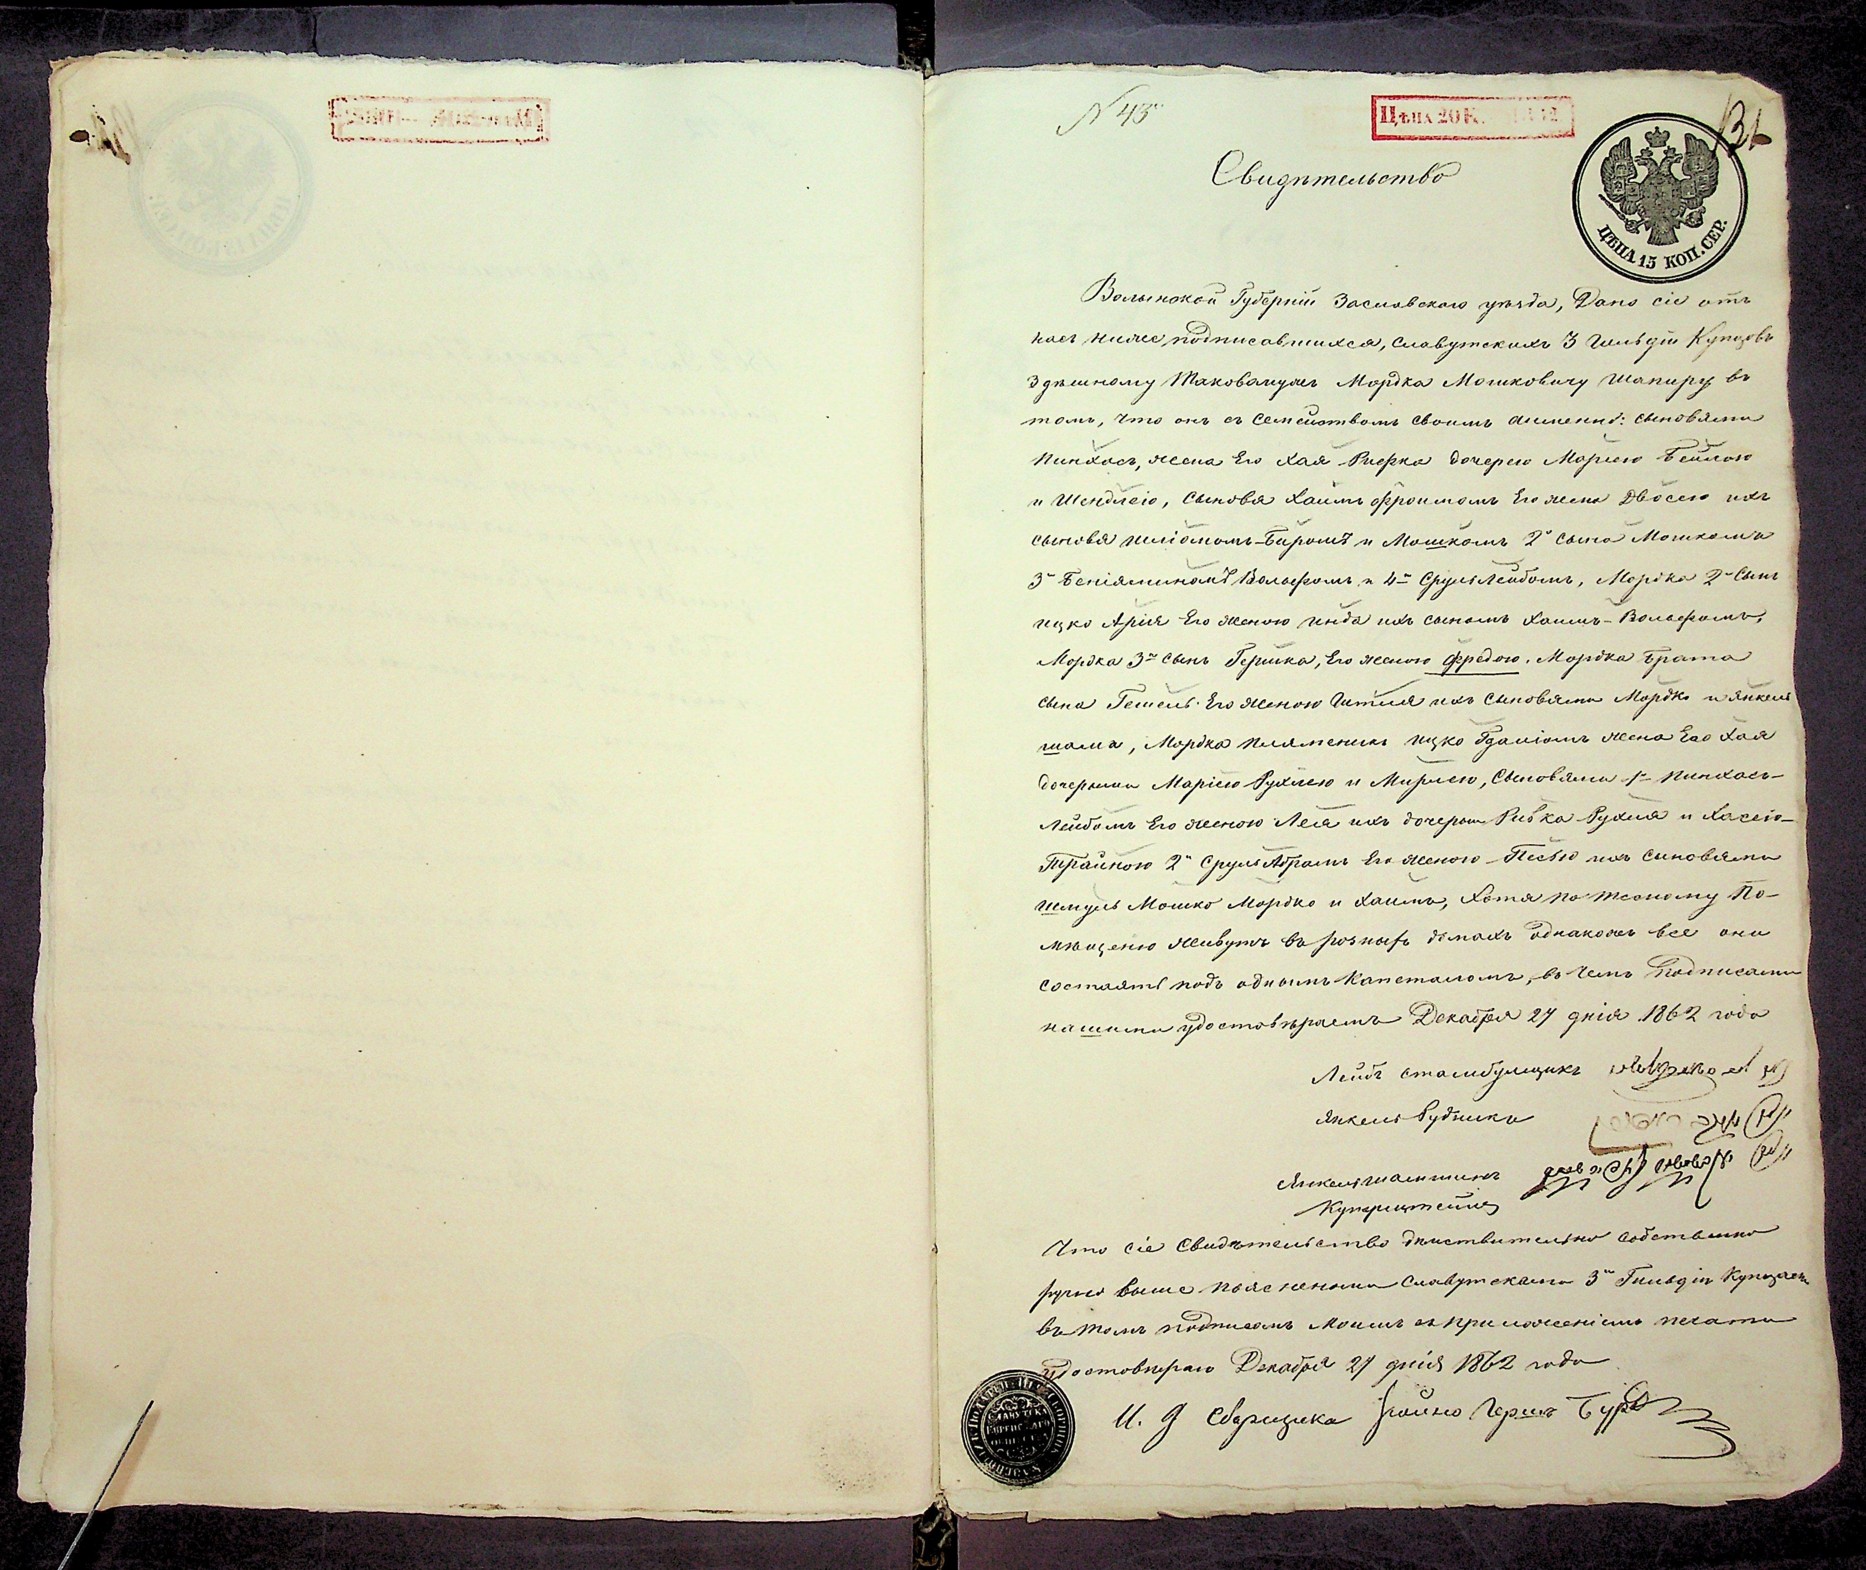 N 43
Цѣна 20 К. 1862
Свидѣтельство
ЦѢНА 15 КОП. СЕР.
Волынской Губерніи Заславскаго уѣзда, Дано сіе отъ
насъ ниже подписавшихся, Славутскихъ 3 Гильдіи Купцовъ
Здѣшному Таковамужъ Мордка Мошковичу Шапиру въ
томъ, что онъ съ Семействомъ своимъ аименно: сыновями
Пинхасъ, жена Его Хая Рифка дочерею Маріею Бейлою
и Шендлею, Сыновя Хаимъ Фроимомъ Его жена Двосею ихъ
сыновя Шліомомъ-Биромъ и Мошкомъ 2й сына Мошкомъ
3й Беніяминомъ Вольфомъ и 4й Срулъ Лейбомъ, Мордка 2й Сынъ
Ицко Арія Его женою Инда ихъ сыномъ Хаимъ-Вольфомъ,
Мордка 3й сынъ Гершка, Его женою Фрейдою. Мордка Брата
сына Гешель Его женою Итля ихъ Сыновями Мордко и Янкель
шама, Мордка племеникъ Ицко Гдаліомъ жена Его Хая
дочерьми Маріею Рухлею и Мирлею, Сыновями 1й Пинхасъ-
Лейбомъ Его женою Лея ихъ дочерьми Ривка Рухля и Хасею-
Трайною 2й Срулъ Абрамъ Его женою Песью ихъ сыновями
Шмуль Мошко Мордко и Хаимъ, Хотя по тесному По-
мѣщению живутъ въ розныхъ домахъ однакожъ все они
состоятъ подъ однымъ Капеталомъ, въ чемъ Подписами
нашими удостовѣраемъ Декабря 27 дніа 1862 года
Лейбъ Стамбулщикъ
Янкель Рудникъ
Янкель
Купер
Что сіе Свидѣтельство дѣиствительно собственно
ручно выше пояснеными Славутскими 3й Гильдіи Купцами
въ томъ подписомъ моимъ съ приложеніемъ печати
удостовѣраю Декабря 27 дніа 1862 года
И. Д Сборщика Герш